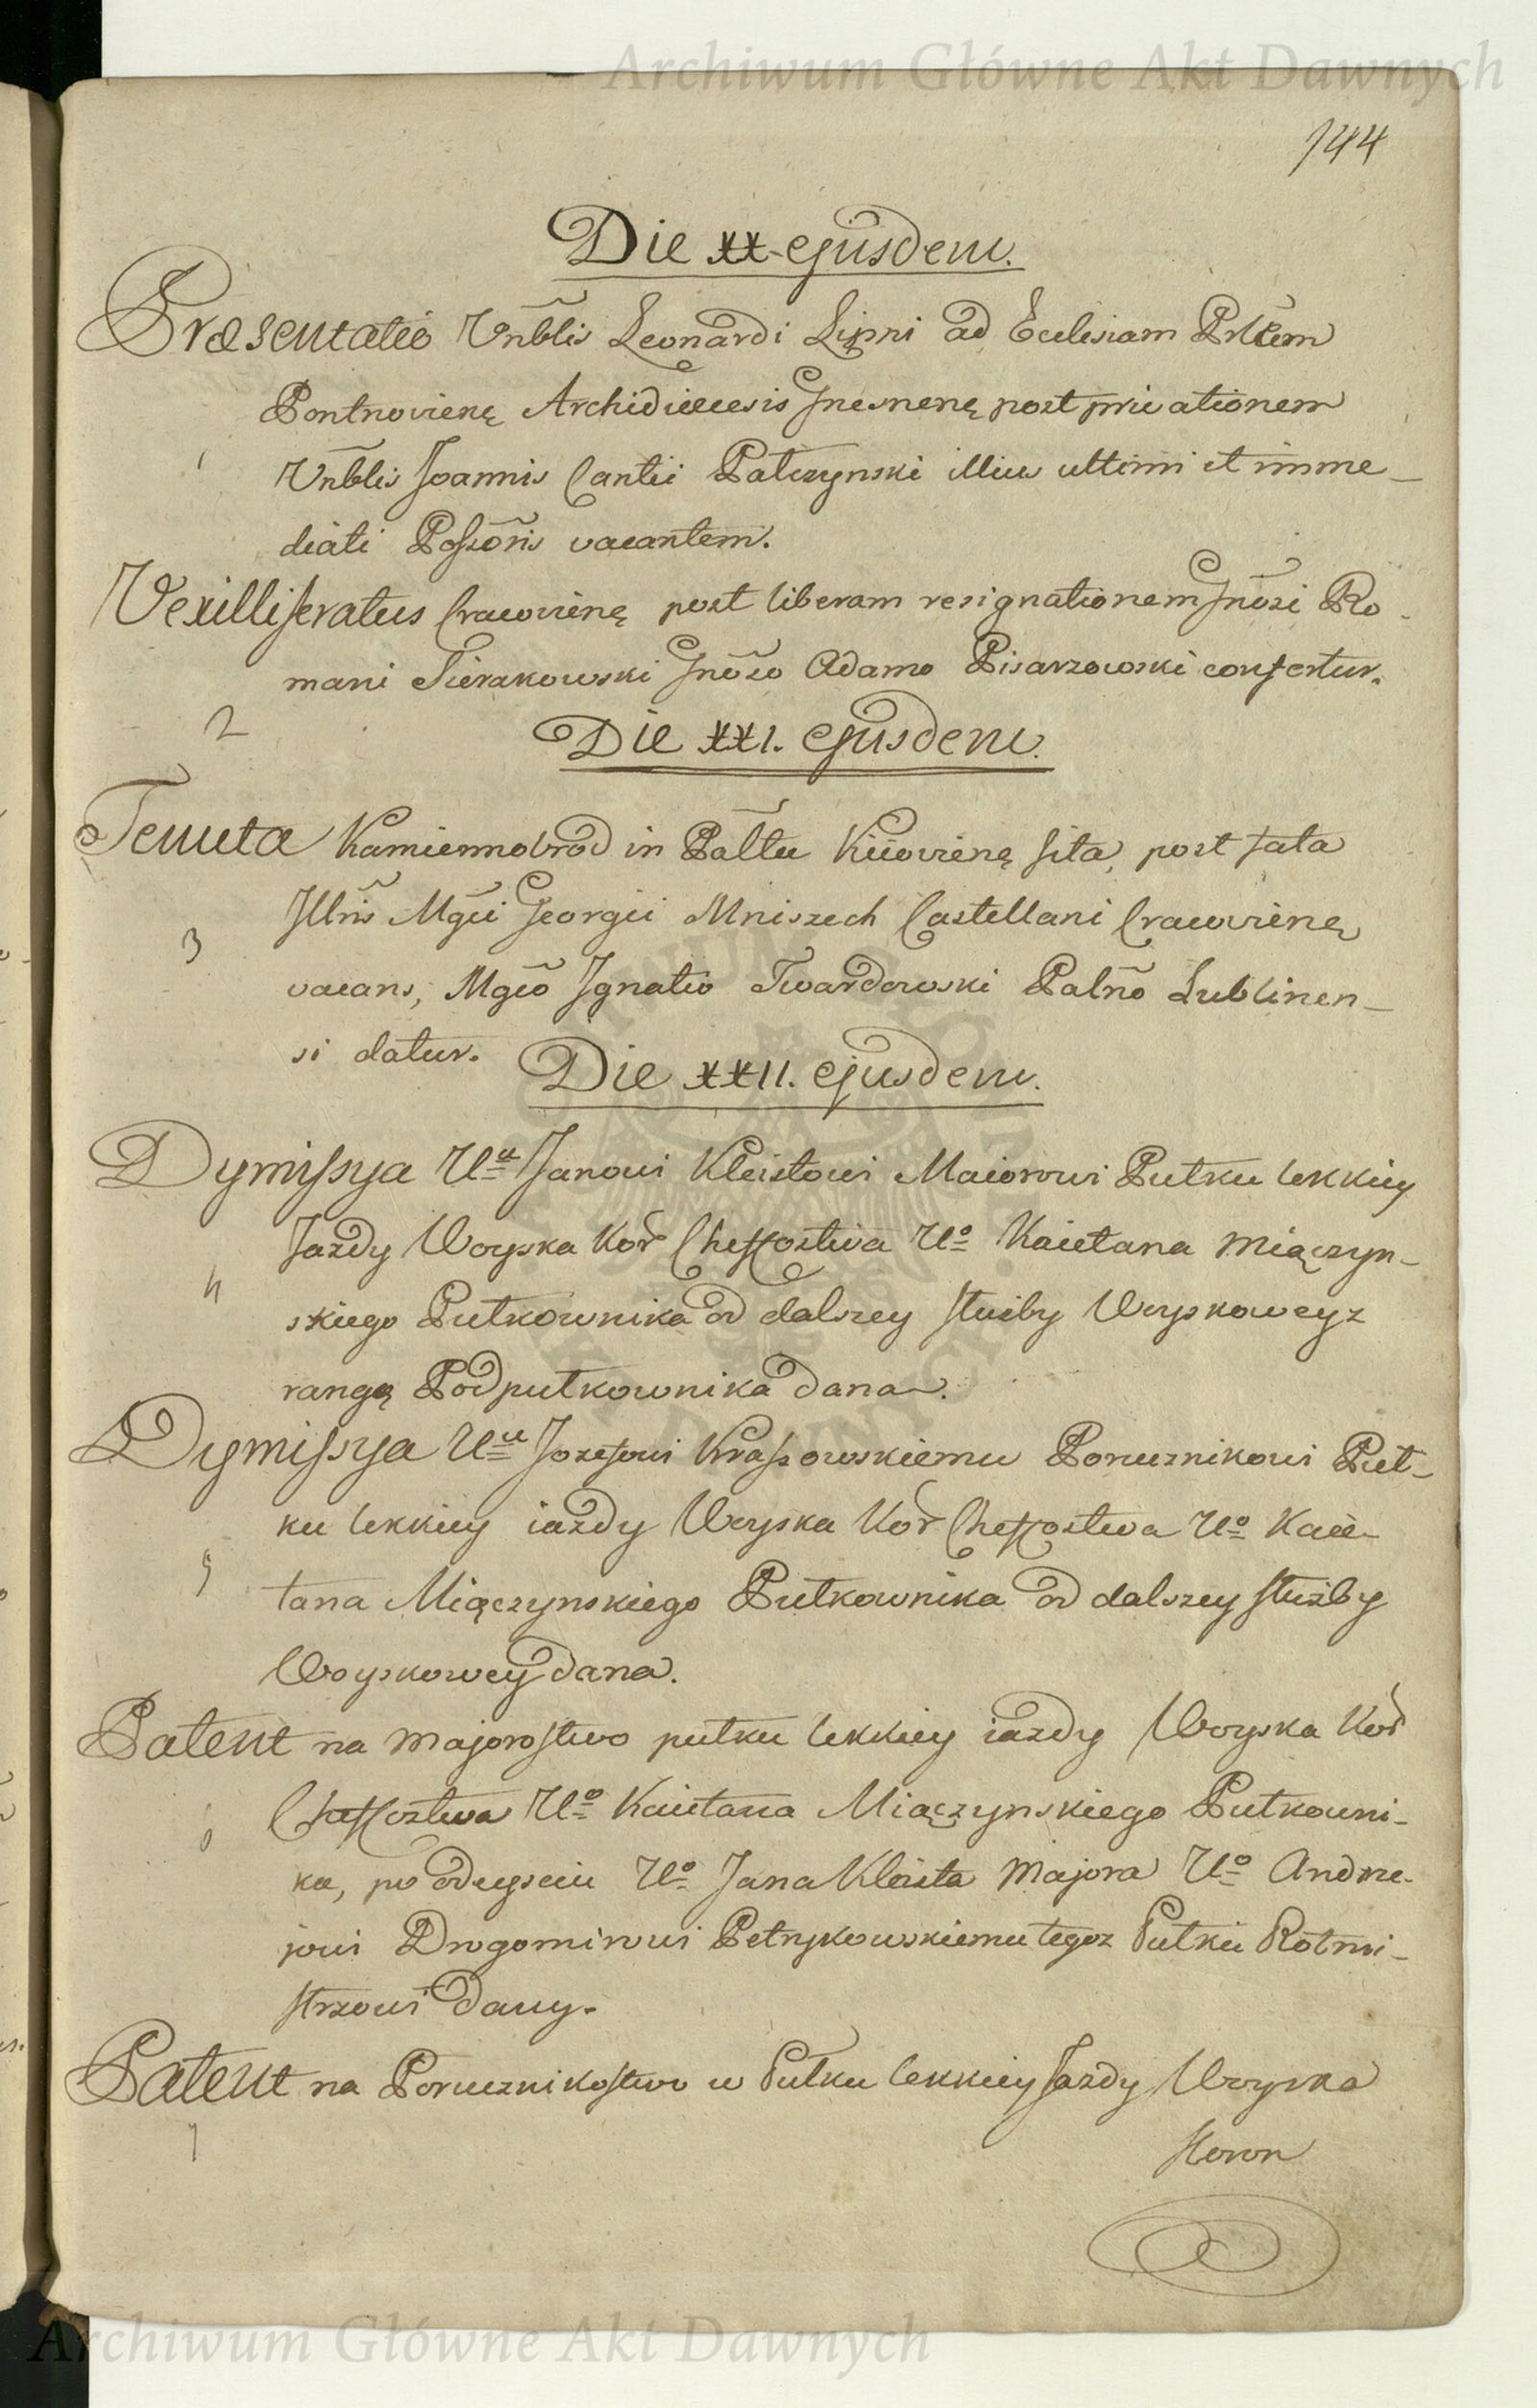 Archiwum Główne Akt Dawnych
144
Die XX ejusdem.
Præsentatio Vnblis Leonardi Lipni ad Eclesiam Prlem
Archidiecesis Gnesnenę post privationem
1
Vnblis Joannis Cantii Patczynski illius ultimi et imme-
diati Poszoris vacantem.
Vexilliferatus Cracovienę post liberam resignationem Gnosi Ro-
mani Sierakowski Gnoso Adamo Pisarzowski confertur.
2
Die XXI. ejusdem.
Tenuta Kamiennobrod in Pałtu Kiiovienę sita, post fata
Jllris Mgci Georgii Mniszech Castellani Cracovienę
3
vacans, Mgco Jgnatio Twardowski Palno Lublinen-
si datur.
Die XXII. ejusdem.
Dymissya Uu Janowi Kleistowi Maiorowi Pułku lekkiey
Jazdy Woyska Kor Cheffostwa Uo Kaietana Miączyn-
4
skiego Pułkownika od dalszey służby Woyskowey z
rangą Podpułkownika dana.
Dymissya Uu Jozefowi Kraszowskiemu Porucznikowi Puł-
ku lekkiey iazdy Woyska Kor Cheffostwa Uo Kaie-
5
tana Miączynskiego Pułkownika od dalszey służby
Woyskowey dana.
Patent na Majorostwo pułku lekkiey iazdy Woyska Kor
Cheffostwa Uo Kaietana Miączynskiego Pułkowni-
6
ka, po odeysciu Uo Jana Kleista Majora Uo Andrze-
jowi Drogomirowi Petrykowskiemu tegoz Pułku Rotmi-
strzowi dany.
Patent na Porucznikostwo w Pułku lekkiey Jazdy Woyska
7
Koron
Archiwum Główne Akt Dawnych